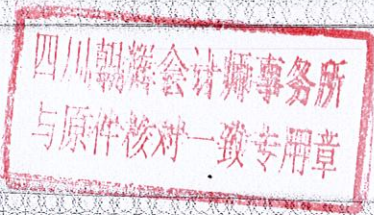 四川朝辉会计师事务所
与原件核对一致专用章